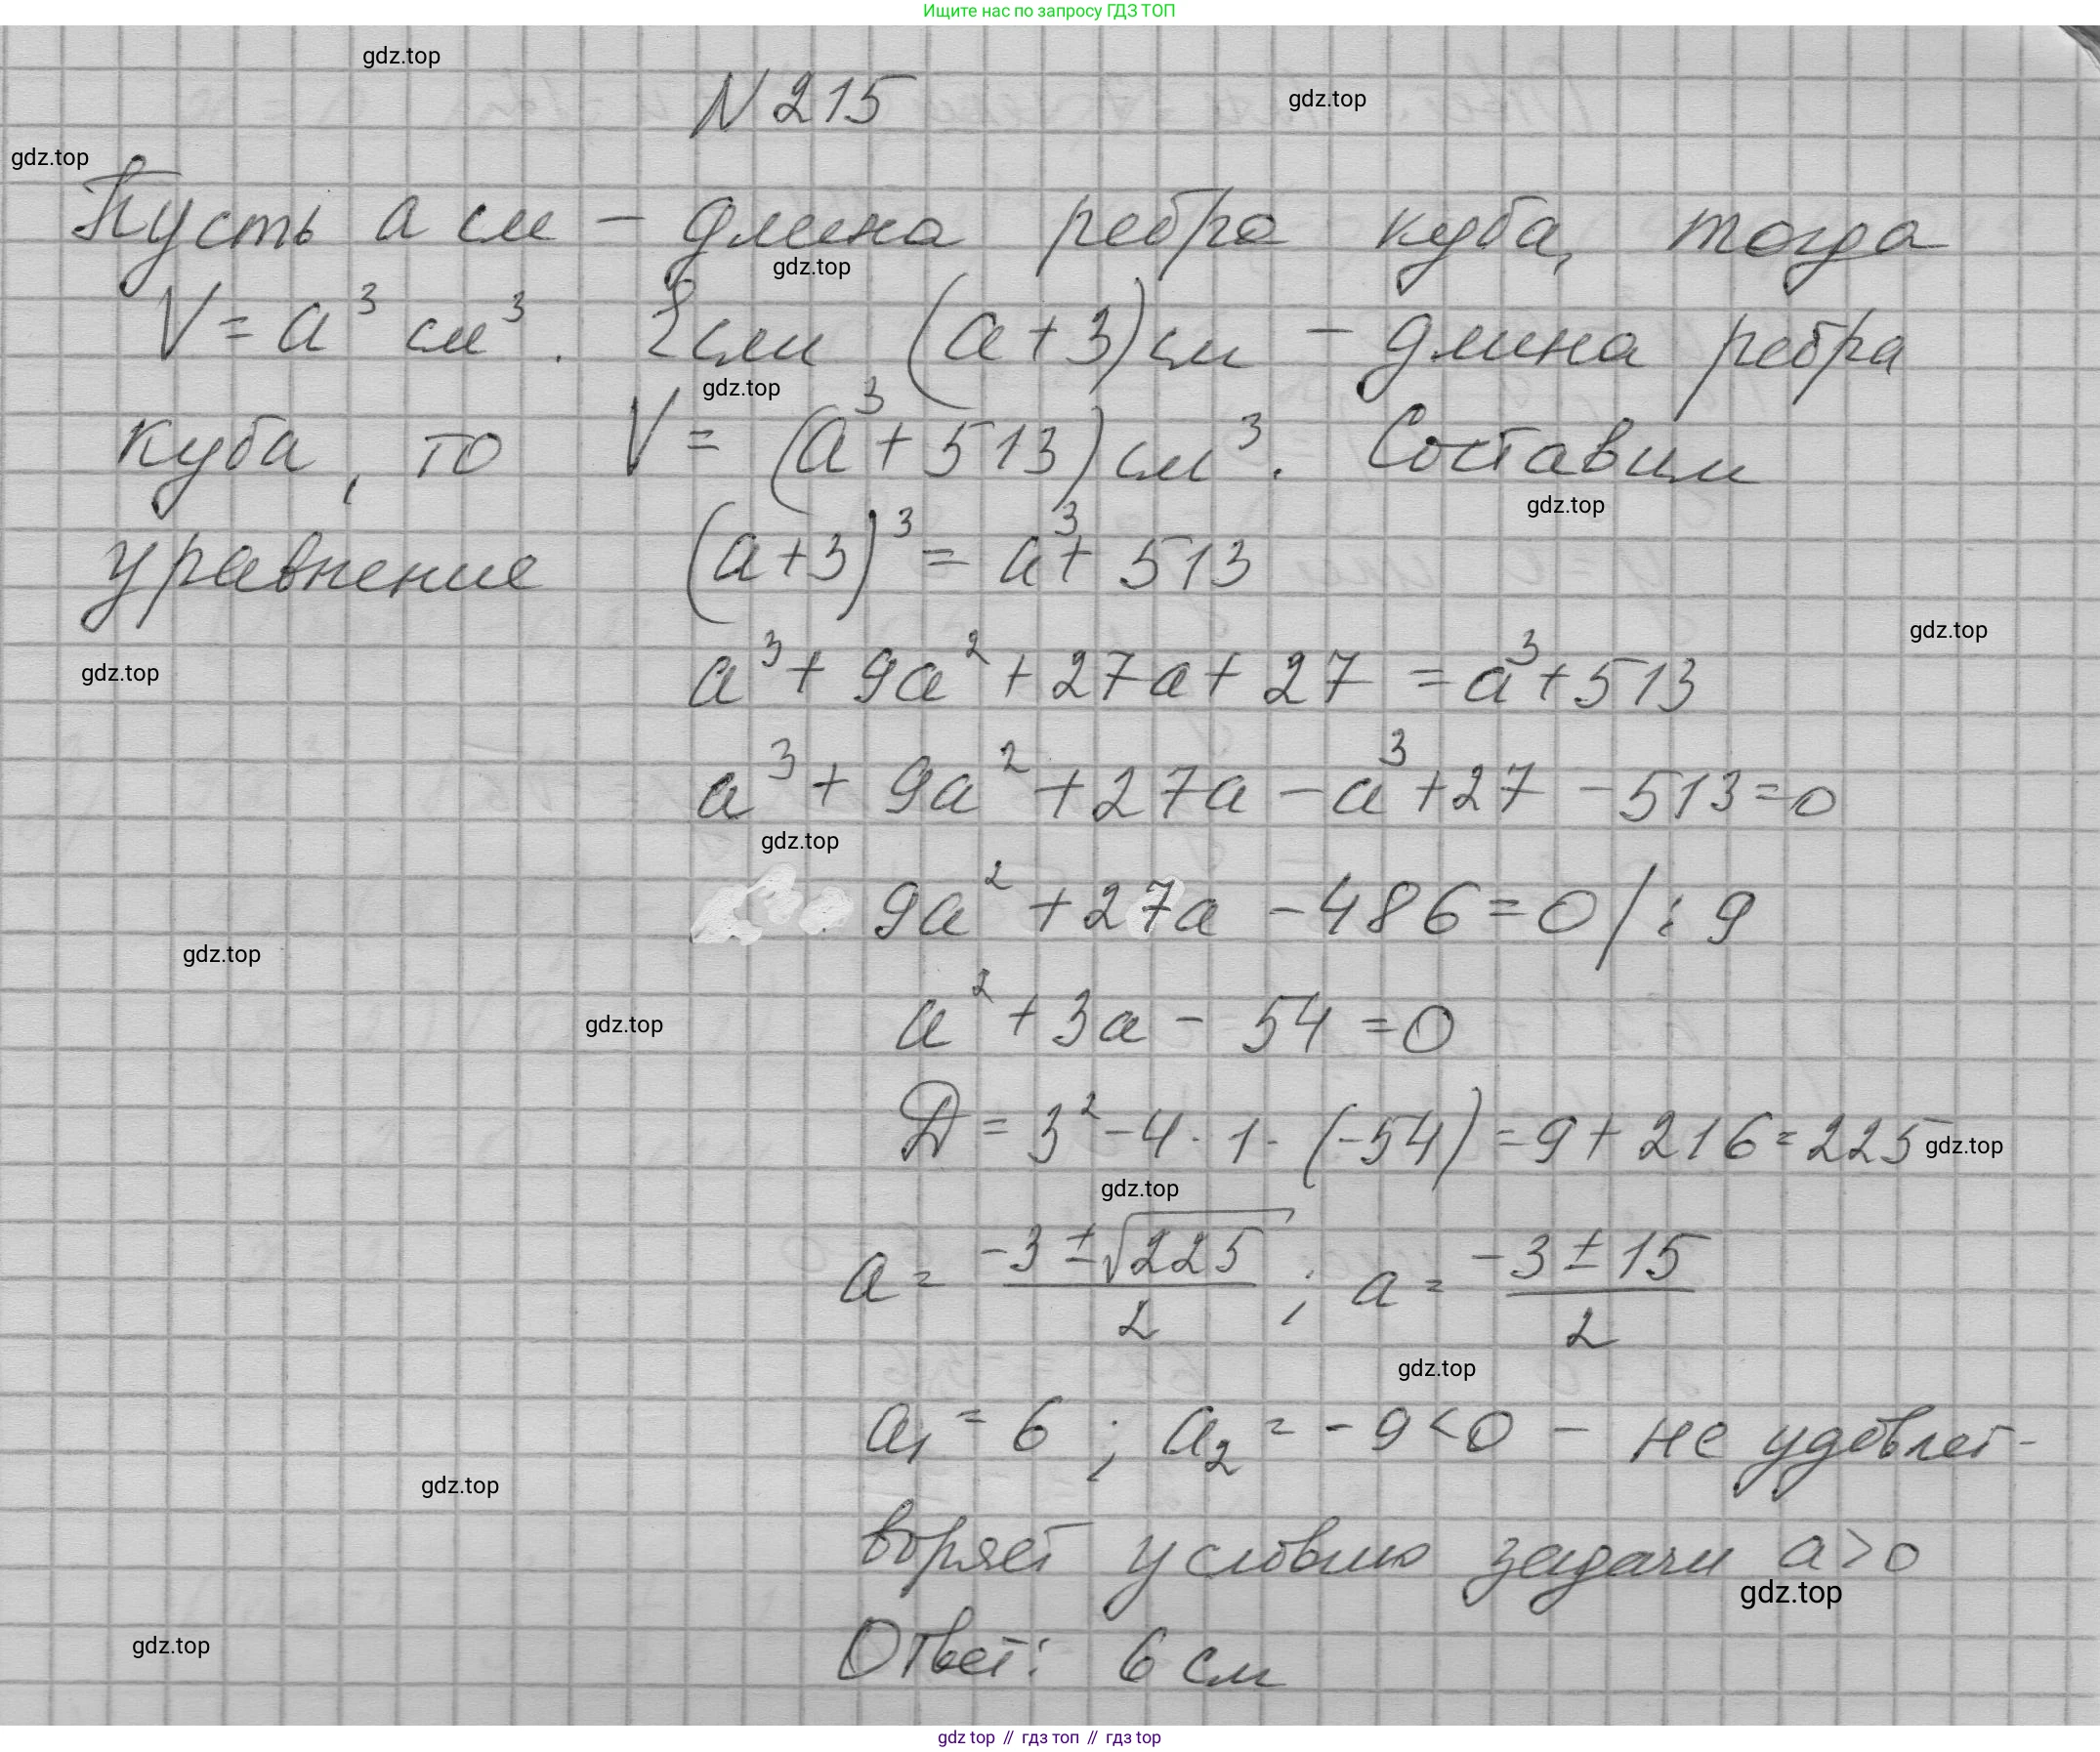 Ищите нас по запросу ГДЗ ТОП
gdz.top
N 215
gdz.top
gdz.top
Пусть a см – длина ребра куба, тогда
gdz.top
V = a³ см³. Если (a+3) см – длина ребра
gdz.top
куба, то V = (a³ + 513) см³. Составим
gdz.top
уравнение (a+3)³ = a³ + 513
gdz.top
a³ + 9a² + 27a + 27 = a³ + 513
gdz.top
a³ + 9a² + 27a – a³ + 27 – 513 = 0
gdz.top
9a² + 27a – 486 = 0 / : 9
gdz.top
a² + 3a – 54 = 0
gdz.top
D = 3² – 4 · 1 · (–54) = 9 + 216 = 225
gdz.top
gdz.top
a = (–3 ± √225)/2 ; a = (–3 ± 15)/2
gdz.top
a₁ = 6 ; a₂ = – 9 < 0 – не удовлет-
gdz.top
воряет условию задачи a > 0
gdz.top
Ответ: 6 см
gdz.top
gdz top // гдз топ // гдз top